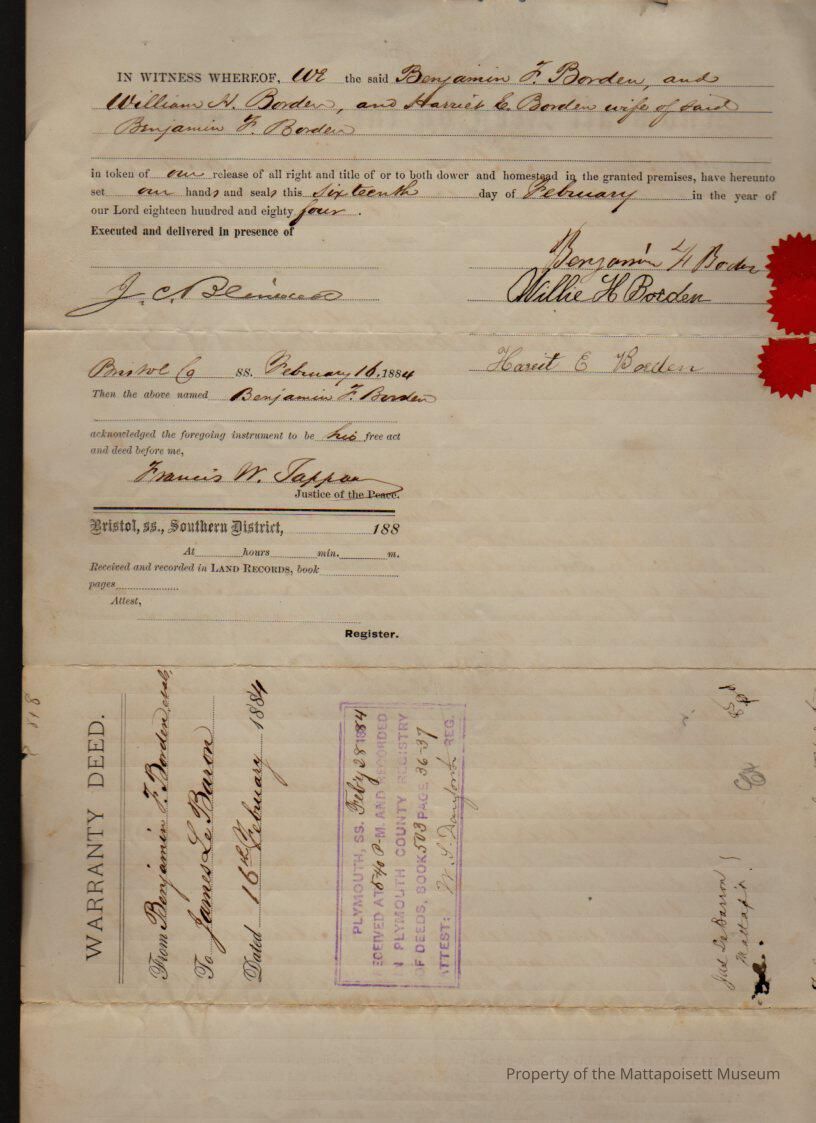 IN WITNESS WHEREOF, WE the said Benjamin F. Borden, and
William H. Borden, and Harriet E. Borden wife of said
Benjamin F. Borden
in token of our release of all right and title of or to both dower and homestead in the granted premises, have hereunto
set our hands and seals this sixteenth day of February in the year of
our Lord eighteen hundred and eighty four.
Executed and delivered in presence of
Benjamin F Borden
J. C.
Willie H Borden
Hareit E Borden
Bristol Co ss. February 16, 1884
Then the above named Benjamin F. Borden
acknowledged the foregoing instrument to be his free act
and deed before me,
Francis W. Tappan
Justice of the Peace.
Bristol, ss., Southern District, 188
At hours min. m.
Received and recorded in LAND RECORDS, book
pages
Attest,
Register.
WARRANTY DEED.
From Benjamin F. Borden, et al,
To James Le Baron
Dated 16th February 1884
PLYMOUTH, SS. Feby 28 1884
RECEIVED AT 5:40 P-M. AND RECORDED
IN PLYMOUTH COUNTY REGISTRY
OF DEEDS, BOOK 503 PAGE 36-37
ATTEST: W. S. Danforth REG.
Jas LeBarron
Mattap.
Property of the Mattapoisett Museum